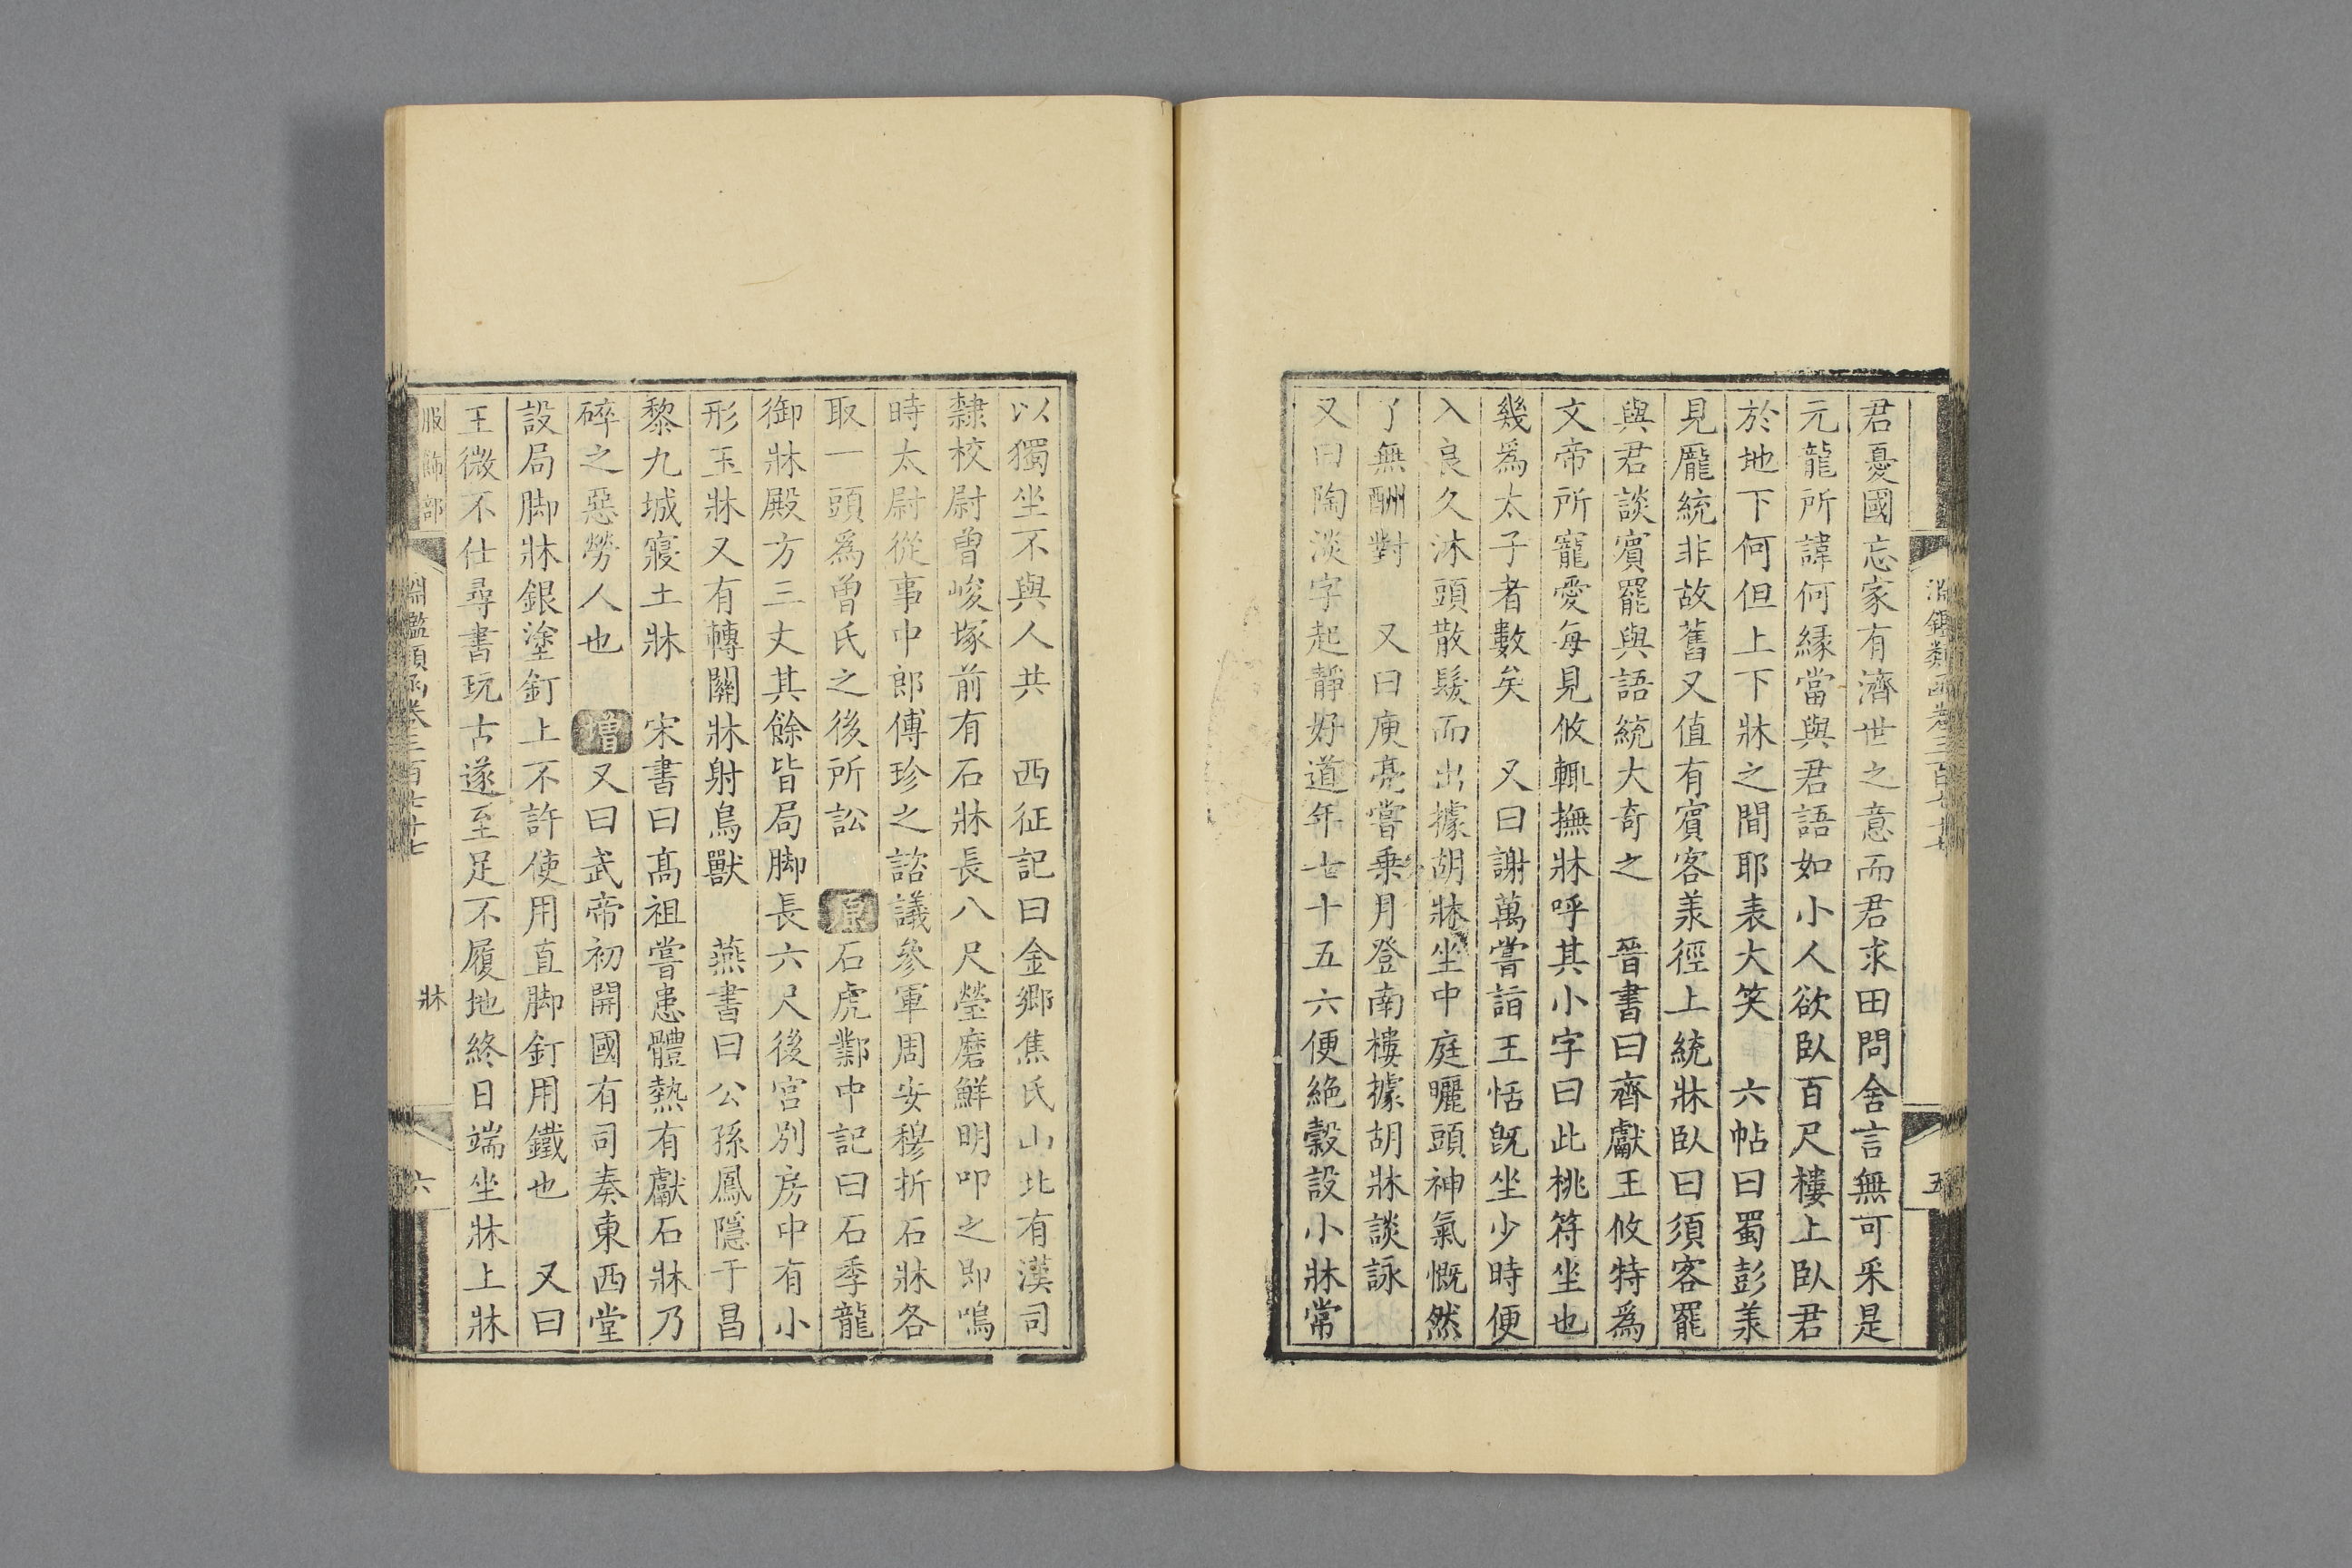 淵鑑類函卷三百七十七
五
君憂國忘家有濟世之意而君求田問舍言無可采是
元龍所諱何緣當與君語如小人欲臥百尺樓上臥君
於地下何但上下牀之間耶表大笑　六帖曰蜀彭羕
見龐統非故舊又值有賓客羕徑上統牀臥曰須客罷
與君談賓罷與語統大奇之　晉書曰齊獻王攸特為
文帝所寵愛每見攸輒撫牀呼其小字曰此桃符坐也
幾爲太子者數矣　又曰謝萬嘗詣王恬旣坐少時便
入良久沐頭散髮而出據胡牀坐中庭曬頭神氣慨然
了無酬對　又曰庾亮嘗乗月登南樓據胡牀談詠
又曰陶淡字起靜好道年十五六便絶穀設小牀常
以獨坐不與人共　西征記曰金鄉焦氏山北有漢司
隸校尉曾峻塚前有石牀長八尺瑩磨鮮明叩之卽鳴
時太尉從事中郎傅珍之諮議參軍周安穆折石牀各
取一頭爲曾氏之後所訟　原石虎鄴中記曰石季龍
御牀殿方三丈其餘皆局脚長六尺後宮別房中有小
形玉牀又有轉關牀射鳥獸　燕書曰公孫鳳隱于昌
黎九城寢土牀　宋書曰髙祖嘗患體熱有獻石牀乃
碎之惡勞人也　增又曰武帝初開國有司奏東西堂
設局脚牀銀塗釘上不許使用直脚釘用鐵也　又曰
王微不仕尋書玩古遂至足不履地終日端坐牀上牀
服飾部
淵鑑類函卷三百七十七
牀
六